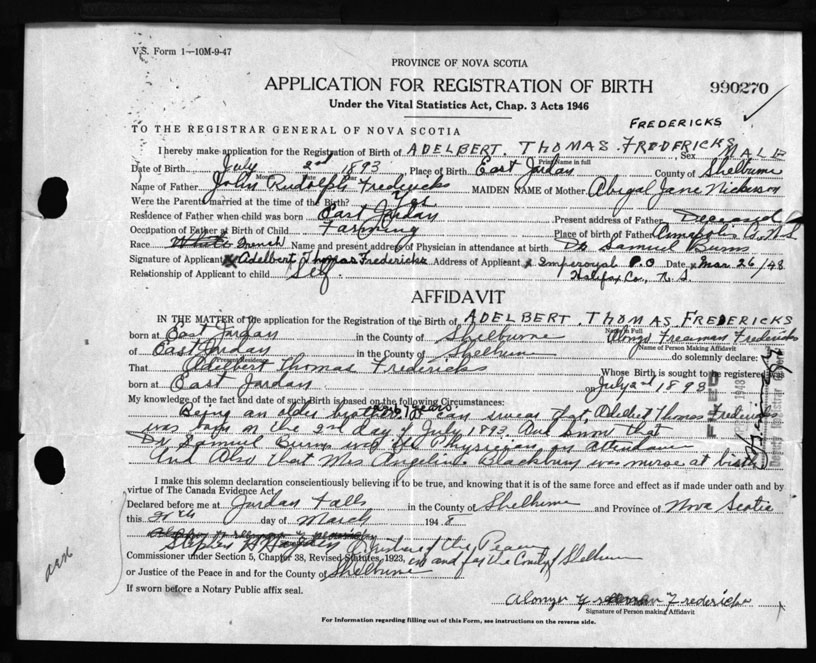 V.S. Form 1—10M-9-47
PROVINCE OF NOVA SCOTIA
APPLICATION FOR REGISTRATION OF BIRTH
990270
Under the Vital Statistics Act, Chap. 3 Acts 1946
FREDERICKS
TO THE REGISTRAR GENERAL OF NOVA SCOTIA
I hereby make application for the Registration of Birth of ADELBERT. THOMAS. FREDERICKS Sex MALE
Print Name in full
Date of Birth July 2nd 1893 Place of Birth East Jordan County of Shelburne
Name of Father John Rudolph Fredericks MAIDEN NAME of Mother Abigal Jane Nickerson
Were the Parents married at the time of the Birth? Yes
Residence of Father when child was born East Jordan Present address of Father Deceased
Occupation of Father at Birth of Child Farming Place of birth of Father Annapolis Co, N.S.
Race White French Name and present address of Physician in attendance at birth Dr Samuel Burns
Signature of Applicant X Adelbert Thomas Fredericks Address of Applicant x Imperoyal P.O Date x Mar 26/48
Relationship of Applicant to child Self Halifax Co., N.S.
AFFIDAVIT
IN THE MATTER of the application for the Registration of the Birth of ADELBERT. THOMAS. FREDERICKS
Name in Full
born at East Jordan in the County of Shelburne Alonzo Freeman Fredericks
Name of Person Making Affidavit
of East Jordan in the County of Shelburne do solemnly declare:
Present Residence
That Adelbert Thomas Fredericks Whose Birth is sought to be registered was
born at East Jordan on July 2nd 1893
My knowledge of the fact and date of such Birth is based on the following Circumstances:
Being an older brother can swear that Adelbert Thomas Fredericks
was born on the 2nd day of July 1893. And Know that
Dr Samuel Burns was the Physician in attendance
And Also that Mrs Angeline Blackburn was nurse at birth
I make this solemn declaration conscientiously believing it to be true, and knowing that it is of the same force and effect as if made under oath and by
virtue of The Canada Evidence Act.
Declared before me at Jordan Falls in the County of Shelburne and Province of Nova Scotia
this day of March 1948
Justice of the Peace
Commissioner under Section 5, Chapter 38, Revised Statutes, 1923, in and for the County of Shelburne
or Justice of the Peace in and for the County of Shelburne
If sworn before a Notary Public affix seal.
Alonzo Freeman Fredericks
Signature of Person making Affidavit
For Information regarding filling out of this Form, see instructions on the reverse side.